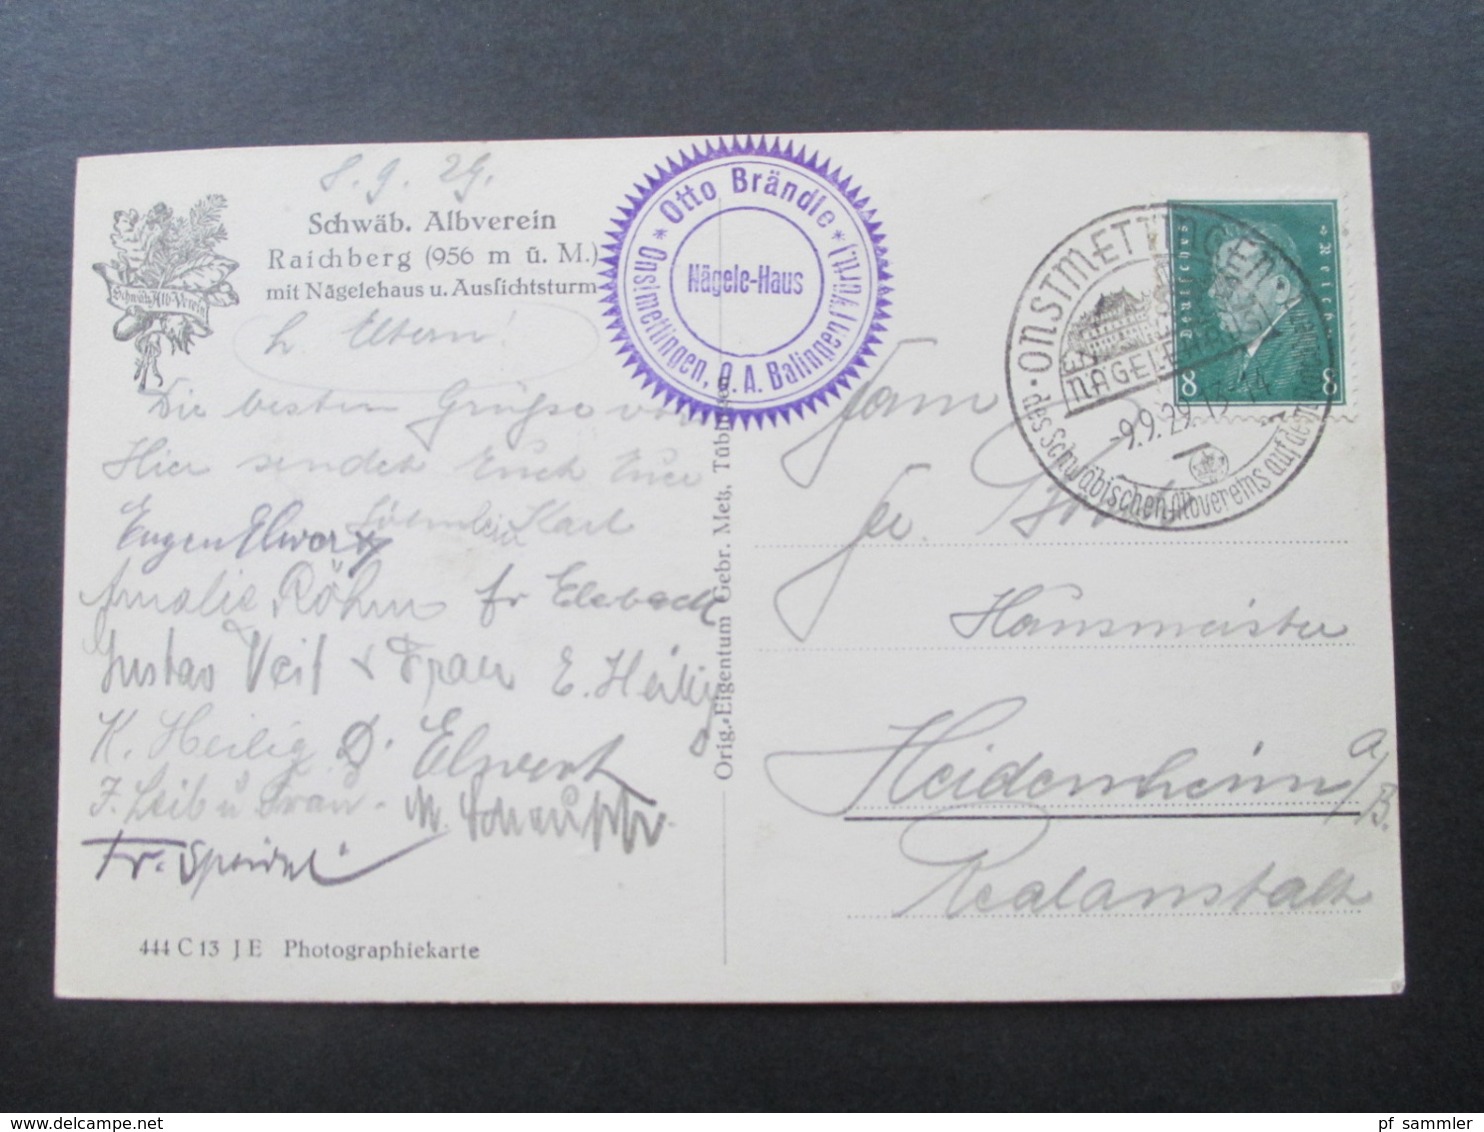 8.9.29.
Schwäb. Albverein
Raichberg (956 m ü. M.)
mit Nägelehaus u. Aussichtsturm
Schwäb. Alb-Verein
L. Eltern!
Die besten Grüße von
Hier sendet Euch Euer
Söhnlein Karl
Eugen Elwert
Amalie Röhm fr Elsbach
Gustav Veit & Frau E. Heilig
K. Heilig D. Elwert
F. Leib u Frau.
Fr. Speidel
444 C 13 J E Photographiekarte
Orig.-Eigentum Gebr. Metz, Tübingen
* Otto Brändle *
Nägele-Haus
Onstmettingen, O.A. Balingen (Württ.)
ONSTMETTINGEN
NÄGELEHAUS
-9.9.29.13-14
des Schwäbischen Albvereins auf dem
Deutsches Reich
8 8
Fam
Hausmeister
Heidenheim a/B.
Realanstalt
pf_sammler